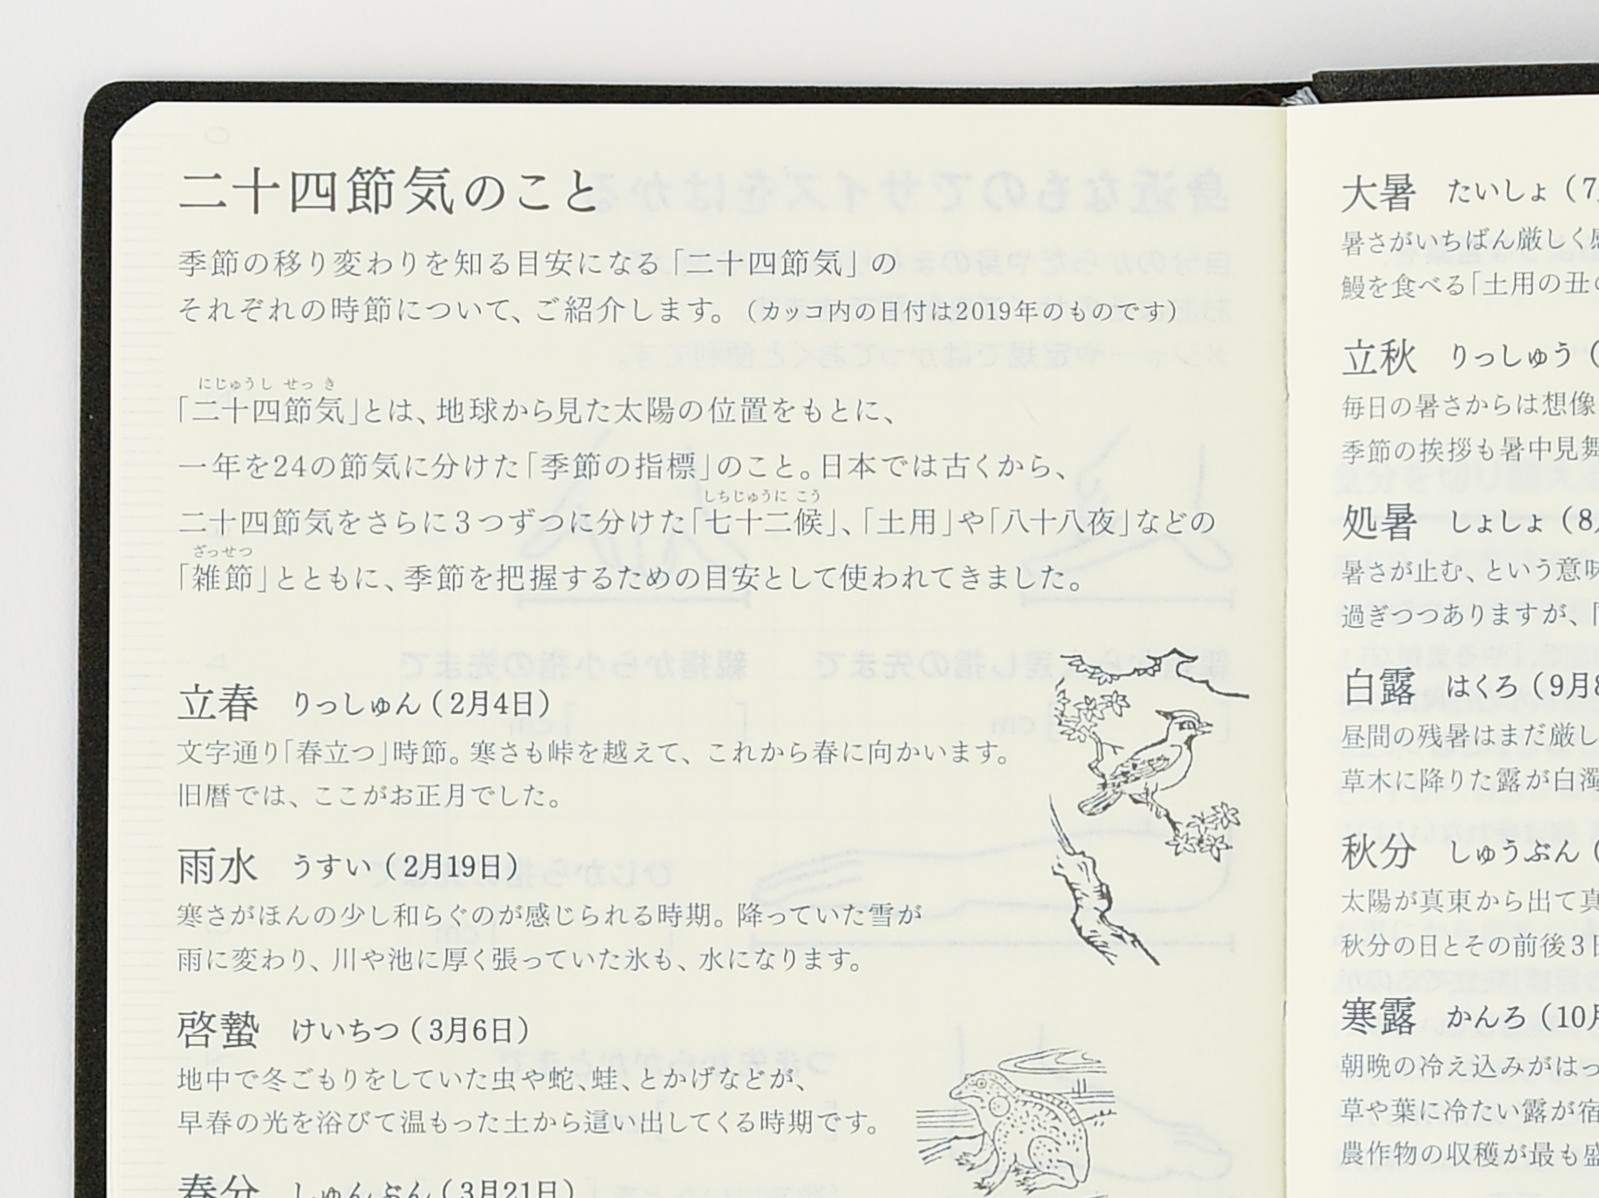 二十四節気のこと
季節の移り変わりを知る目安になる「二十四節気」の
それぞれの時節について、ご紹介します。（カッコ内の日付は2019年のものです）
にじゅうし せっ き
「二十四節気」とは、地球から見た太陽の位置をもとに、
一年を24の節気に分けた「季節の指標」のこと。日本では古くから、
しちじゅうに こう
二十四節気をさらに3つずつに分けた「七十二候」、「土用」や「八十八夜」などの
ざっせつ
「雑節」とともに、季節を把握するための目安として使われてきました。
立春 りっしゅん（2月4日）
文字通り「春立つ」時節。寒さも峠を越えて、これから春に向かいます。
旧暦では、ここがお正月でした。
雨水 うすい（2月19日）
寒さがほんの少し和らぐのが感じられる時期。降っていた雪が
雨に変わり、川や池に厚く張っていた氷も、水になります。
啓蟄 けいちつ（3月6日）
地中で冬ごもりをしていた虫や蛇、蛙、とかげなどが、
早春の光を浴びて温もった土から這い出してくる時期です。
春分 しゅんぶん（3月21日）
大暑 たいしょ（7
暑さがいちばん厳しく
鰻を食べる「土用の丑
立秋 りっしゅう（
毎日の暑さからは想像
季節の挨拶も暑中見舞
処暑 しょしょ（8
暑さが止む、という意味
過ぎつつありますが、「
白露 はくろ（9月8
昼間の残暑はまだ厳し
草木に降りた露が白濁
秋分 しゅうぶん（
太陽が真東から出て真
秋分の日とその前後3日
寒露 かんろ（10月
朝晩の冷え込みがはっ
草や葉に冷たい露が宿
農作物の収穫が最も盛